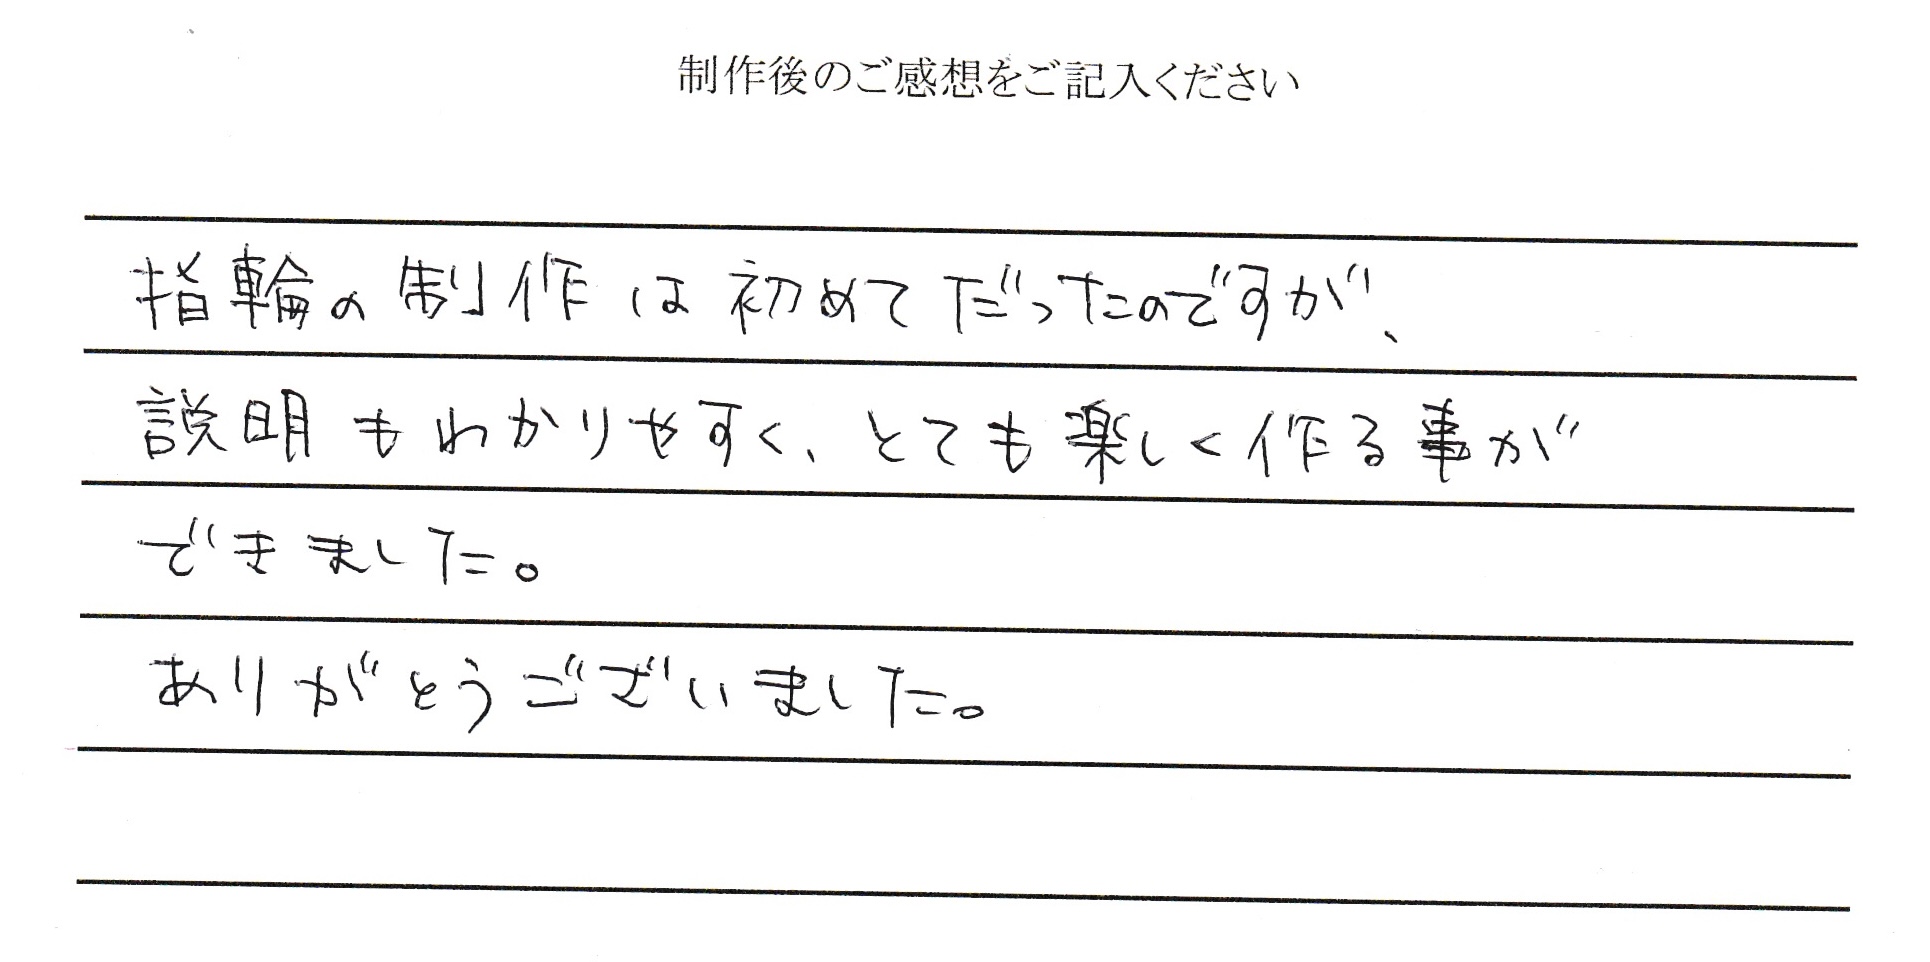 制作後のご感想をご記入ください
指輪の制作は初めてだったのですが、
説明もわかりやすく、とても楽しく作る事が
できました。
ありがとうございました。